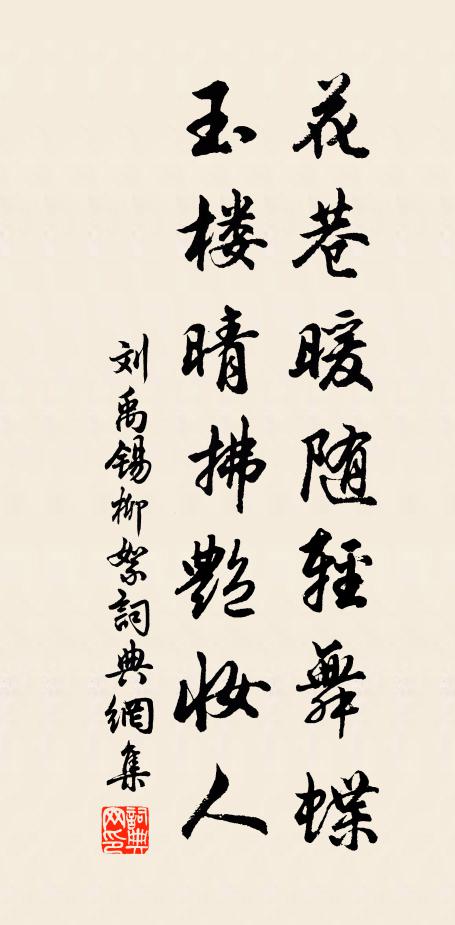 花巷暖随轻舞蝶
玉楼晴拂艳妆人
刘禹锡柳絮詞典網集
詞典网印